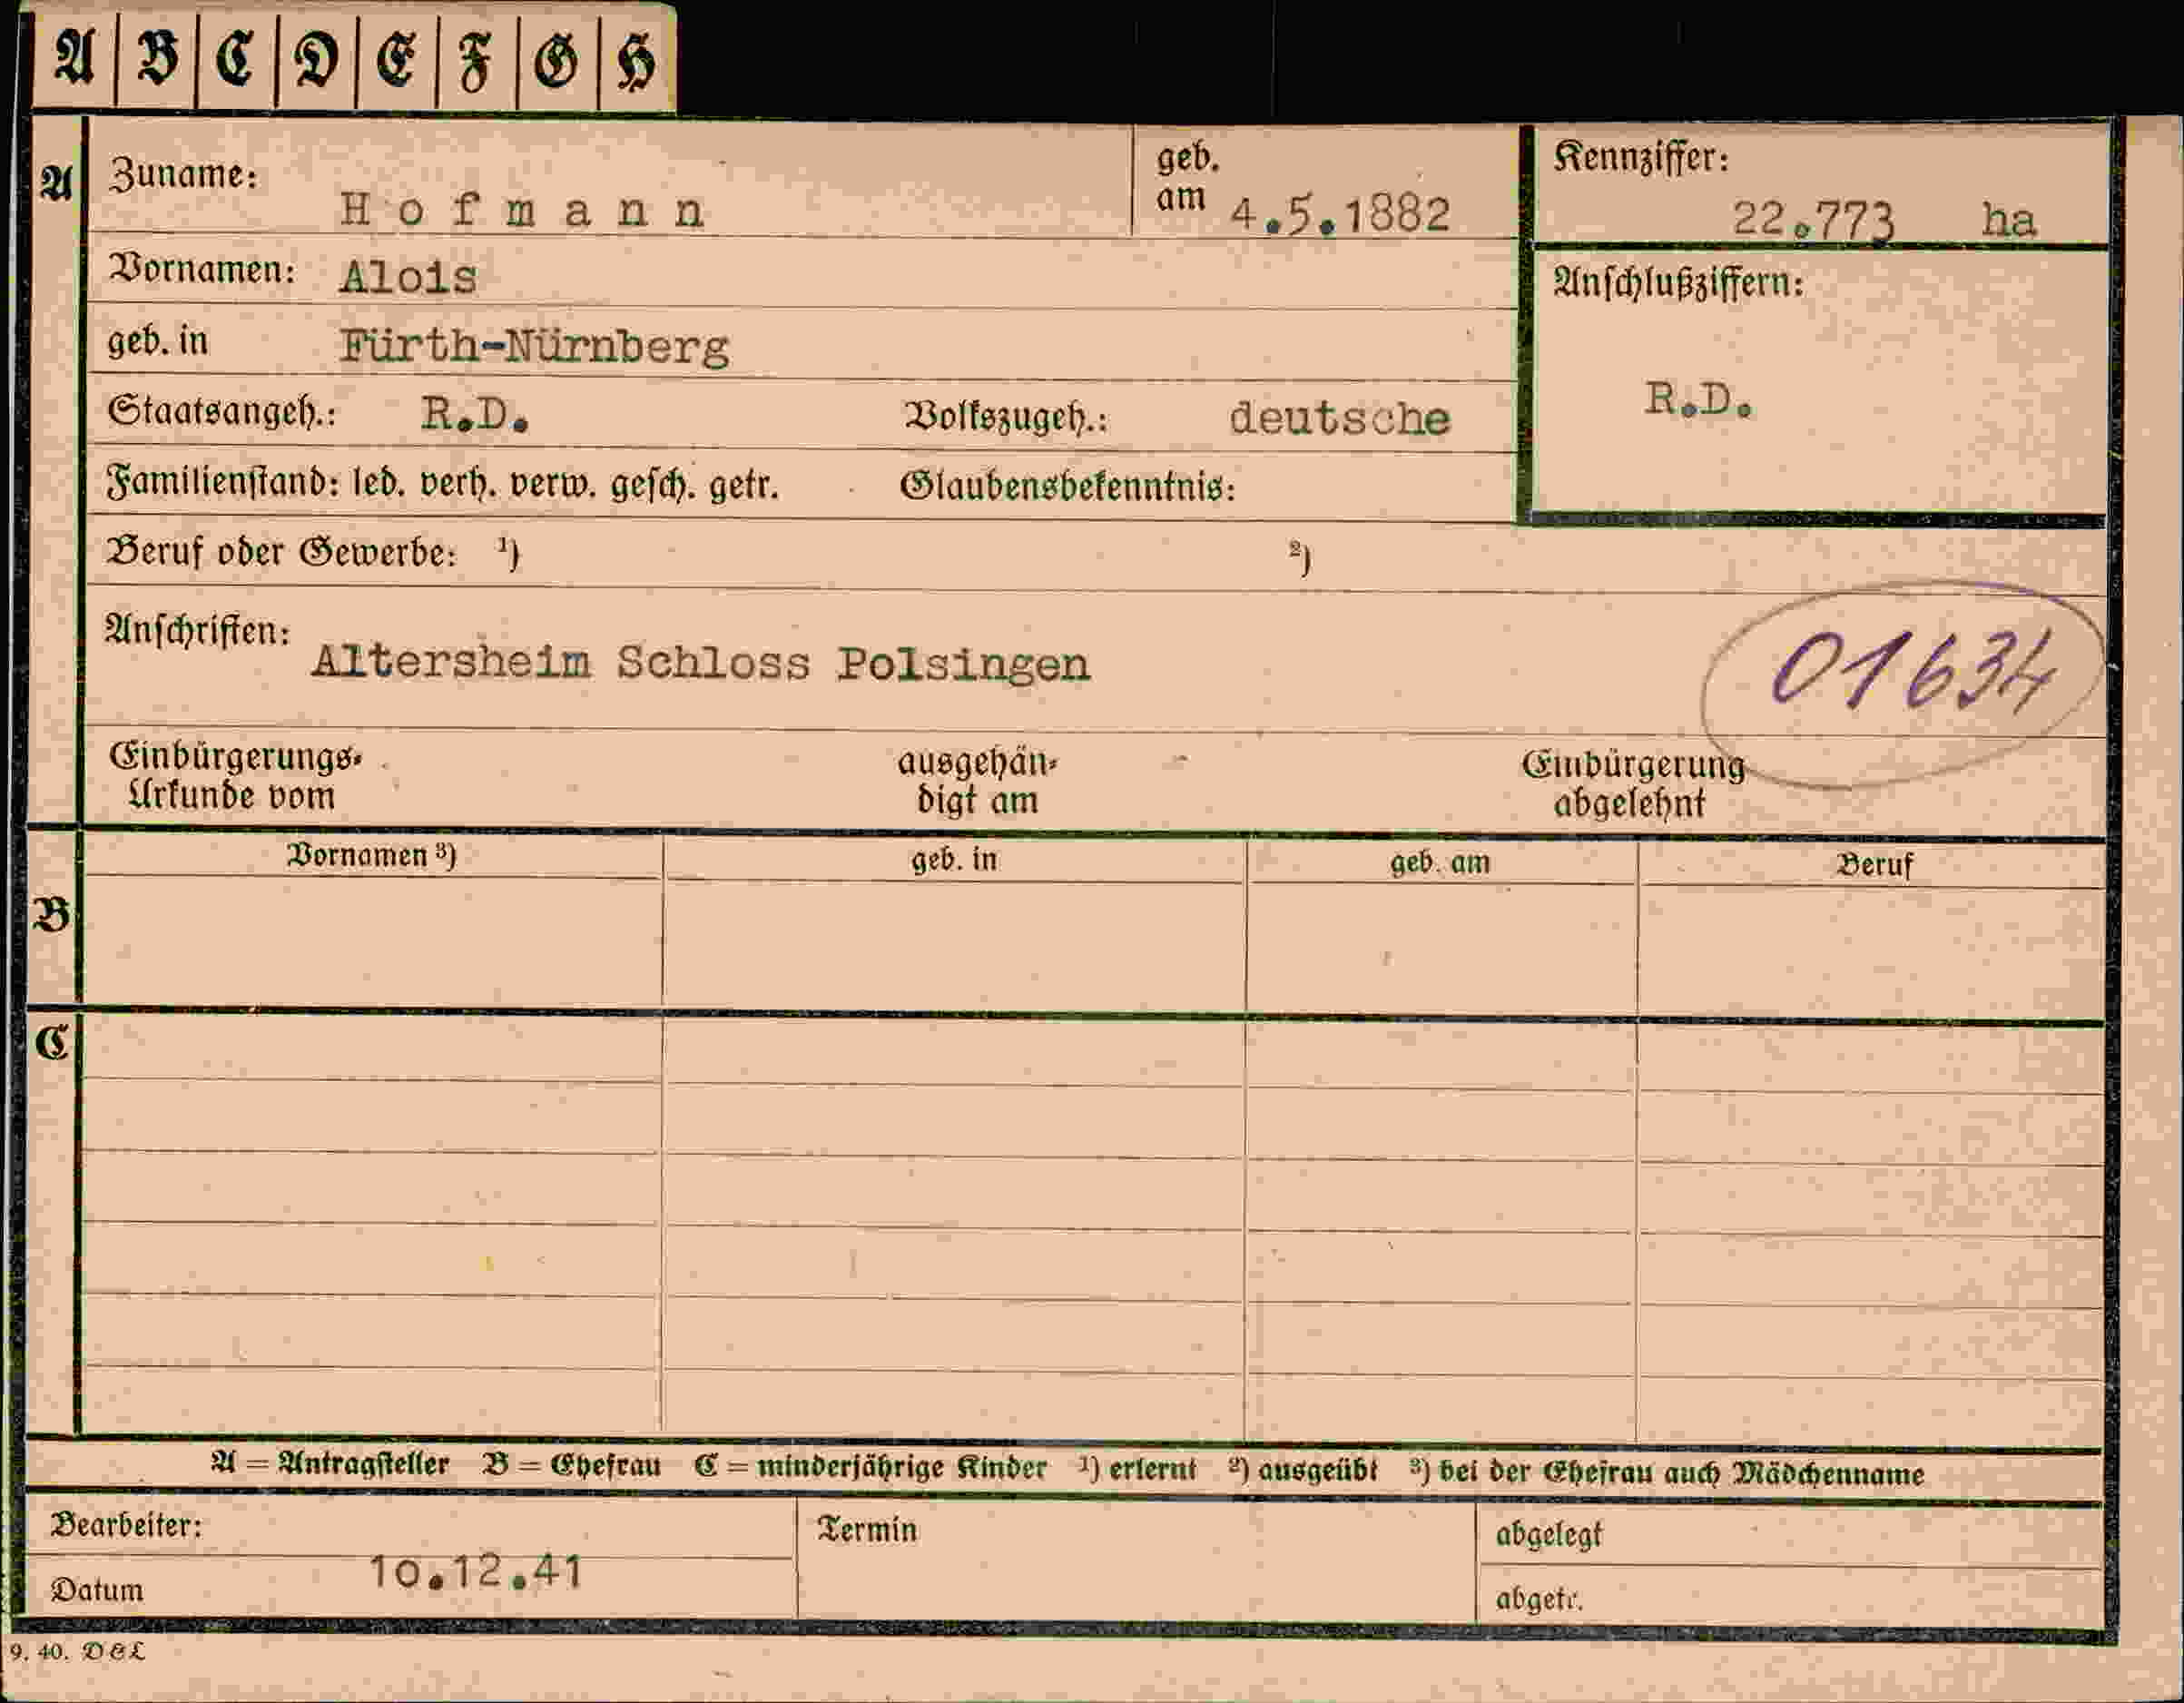 A B C D E F G H
A Zuname: Hofmann geb. am 4.5.1882 Kennziffer: 22.773 ha
Vornamen: Alois Anschlußziffern:
geb. in Fürth-Nürnberg
Staatsangeh.: R.D. Volkszugeh.: deutsche R.D.
Familienstand: led. verh. verw. gesch. getr. Glaubensbekenntnis:
Beruf oder Gewerbe: ¹) ²)
Anschriften: Altersheim Schloss Polsingen 01634
Einbürgerungs- ausgehän- Einbürgerung
Urkunde vom digt am abgelehnt
Vornamen ³) geb. in geb. am Beruf
B
C
A = Antragsteller B = Ehefrau C = minderjährige Kinder ¹) erlernt ²) ausgeübt ³) bei der Ehefrau auch Mädchenname
Bearbeiter: Termin abgelegt
Datum 10.12.41 abgetr.
9. 40. DCL